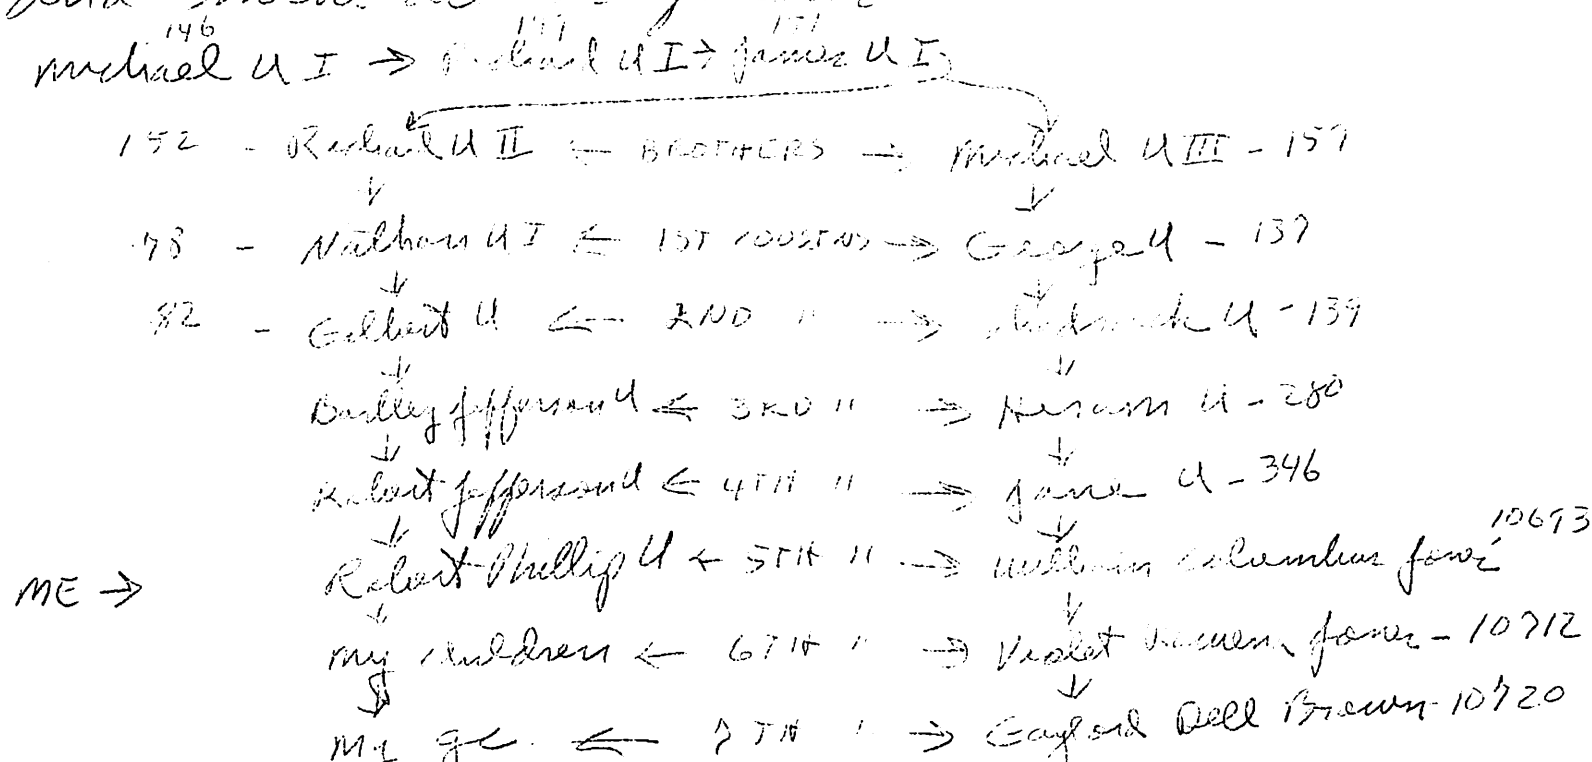 146
Michael U I → Richard U I → James U I
152 - Richard U II ← BROTHERS → Michael U III - 157
78 - Nathan U I ← 1ST COUSINS → George U - 137
82 - Gilbert U ← 2ND " → U - 139
Bartley Jefferson U ← 3RD " → Hiram U - 280
Robert Jefferson U ← 4TH " → Jane U - 346
ME → Robert Phillip U ← 5TH " → William Columbus Jones 10693
My children ← 6TH " → Violet Jones - 10712
My gc. ← 7TH " → Gayford Dell Brown - 10720